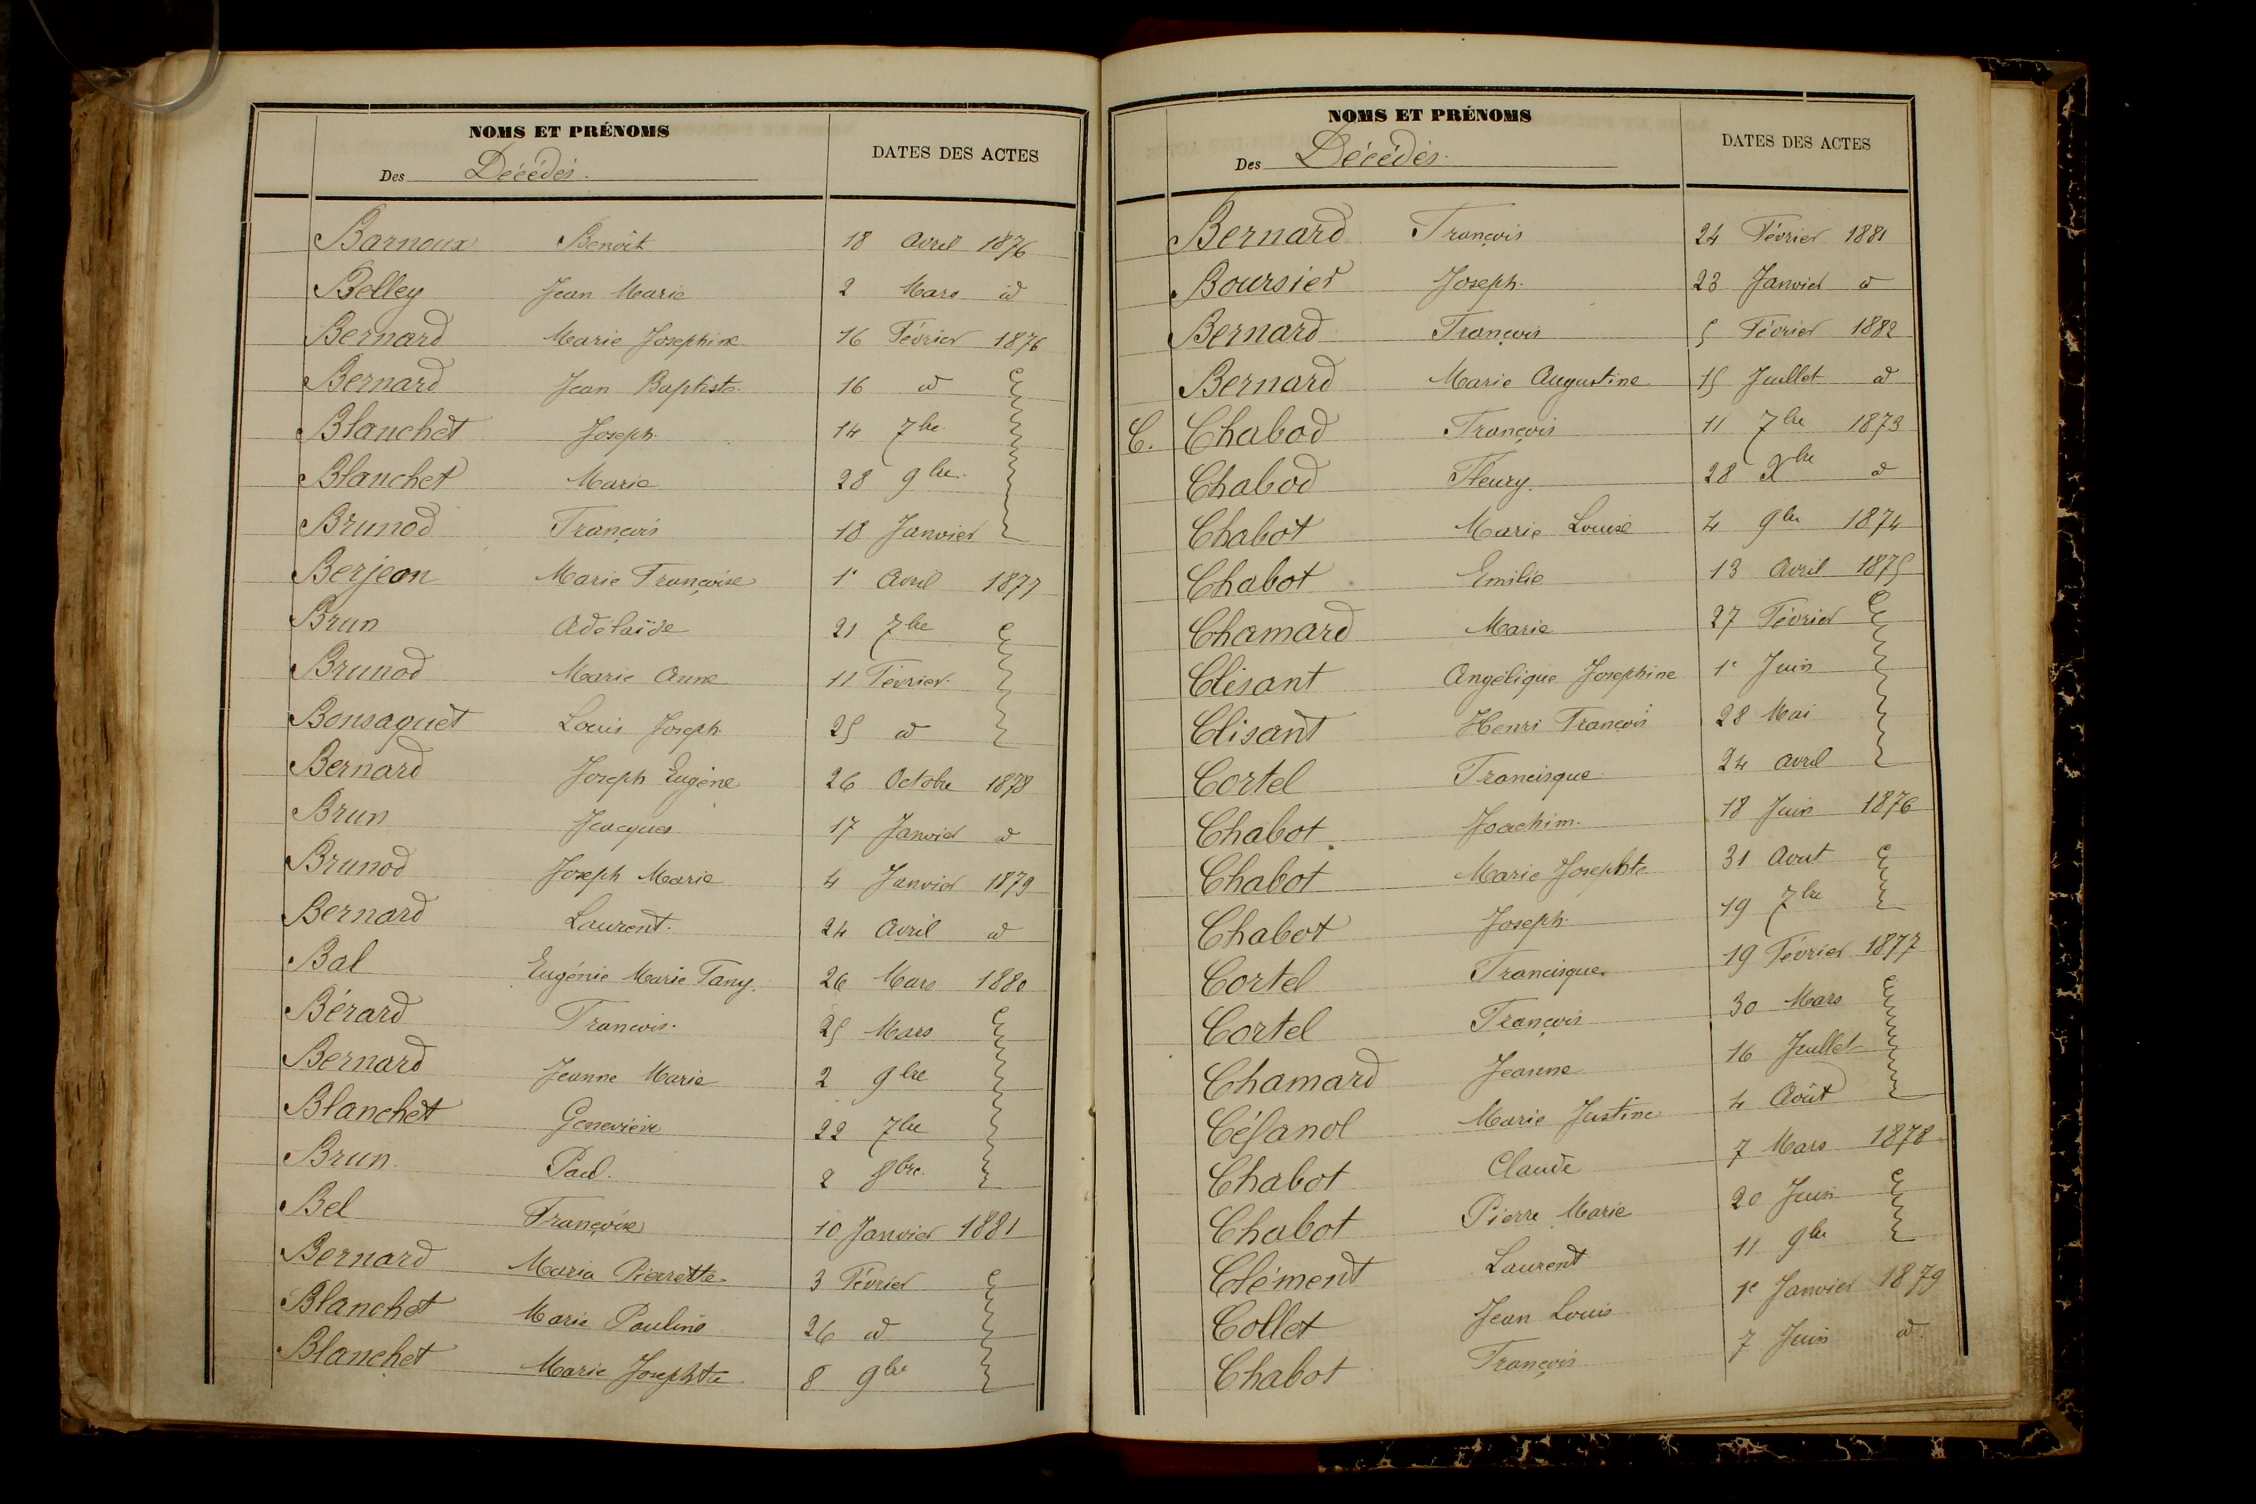 NOMS ET PRÉNOMS
DATES DES ACTES
Des Décédés.
Barnoux Benoit 18 Avril 1876
Belley Jean Marie 2 Mars id
Bernard Marie Josephine 16 Février 1876
Bernard Jean Baptiste 16 id
Blanchet Joseph 14 7bre
Blanchet Marie 28 9bre
Brunod François 18 Janvier
Berjeon Marie Françoise 1er Avril 1877
Brun Adélaïde 21 7bre
Brunod Marie Anne 11 Février
Bonsaquet Louis Joseph 25 id
Bernard Joseph Eugène 26 Octobre 1878
Brun Jacques 17 Janvier id
Brunod Joseph Marie 4 Janvier 1879
Bernard Laurent. 24 Avril id
Bal Eugénie Marie Fany. 26 Mars 1880
Bérard François. 25 Mars
Bernard Jeanne Marie 2 9bre
Blanchet Geneviève 22 7bre
Brun Paul. 2 8bre
Bel Françoise 10 Janvier 1881
Bernard Maria Pierrette 3 Février
Blanchet Marie Pauline 26 id
Blanchet Marie Josephte 8 9bre
NOMS ET PRÉNOMS
DATES DES ACTES
Des Décédés.
Bernard François 24 Février 1881
Boursier Joseph. 23 Janvier id
Bernard François 5 Février 1882
Bernard Marie Augustine 15 Juillet id
C. Chabod François 11 7bre 1873
Chabod Fleury. 28 Xbre id
Chabot Marie Louise 4 9bre 1874
Chabot Emilie 13 Avril 1875
Chamard Marie 27 Février
Clisant Angélique Josephine 1er Juin
Clisant Henri François 28 Mai
Cortel Francisque 24 Avril
Chabot Joachim. 18 Juin 1876
Chabot Marie Josephte 31 Aout
Chabot Joseph. 19 7bre
Cortel Francisque 19 Février 1877
Cortel François 30 Mars
Chamard Jeanne 16 Juillet
Céfanol Marie Justine 4 Août
Chabot Claude 7 Mars 1878
Chabot Pierre Marie 20 Juin
Clément Laurent 11 9bre
Collet Jean Louis 1er Janvier 1879
Chabot François 7 Juin id